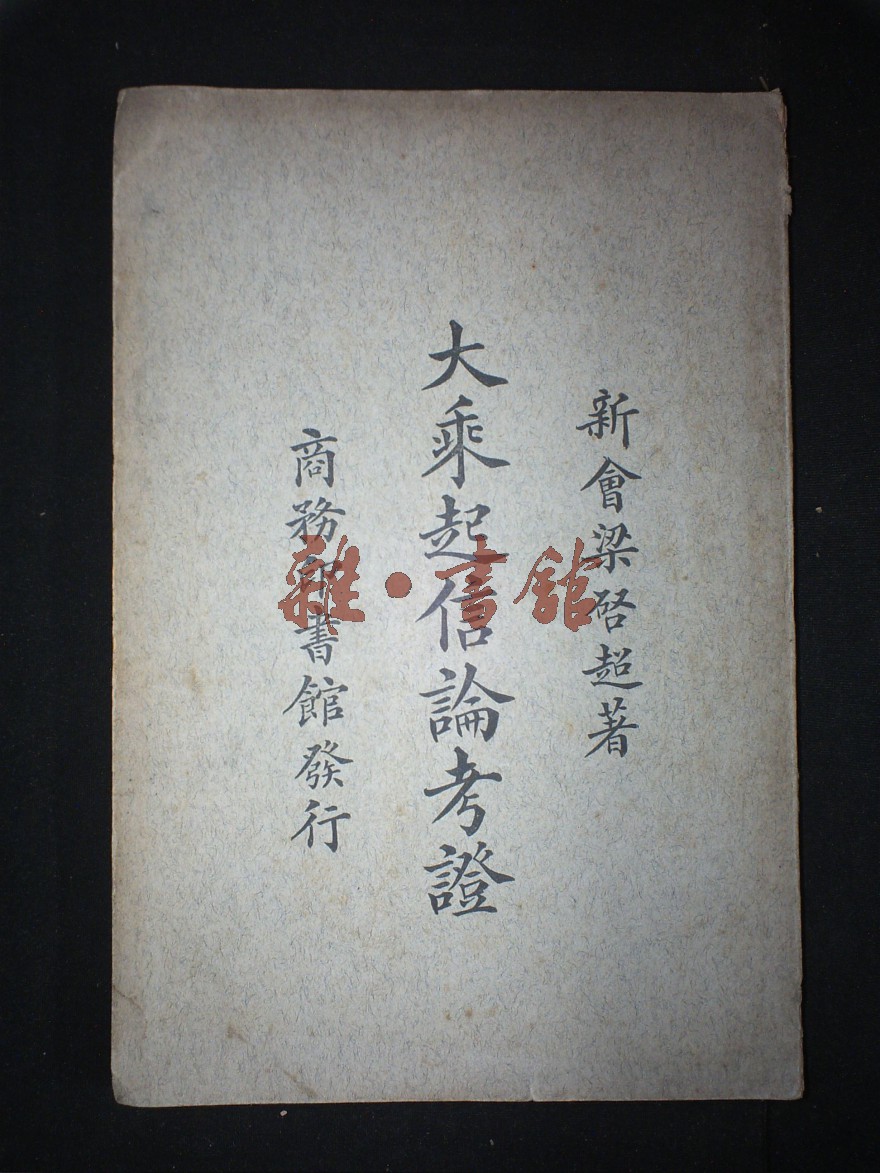 新會梁啓超著
大乘起信論考證
商務印書館發行
雜·書館